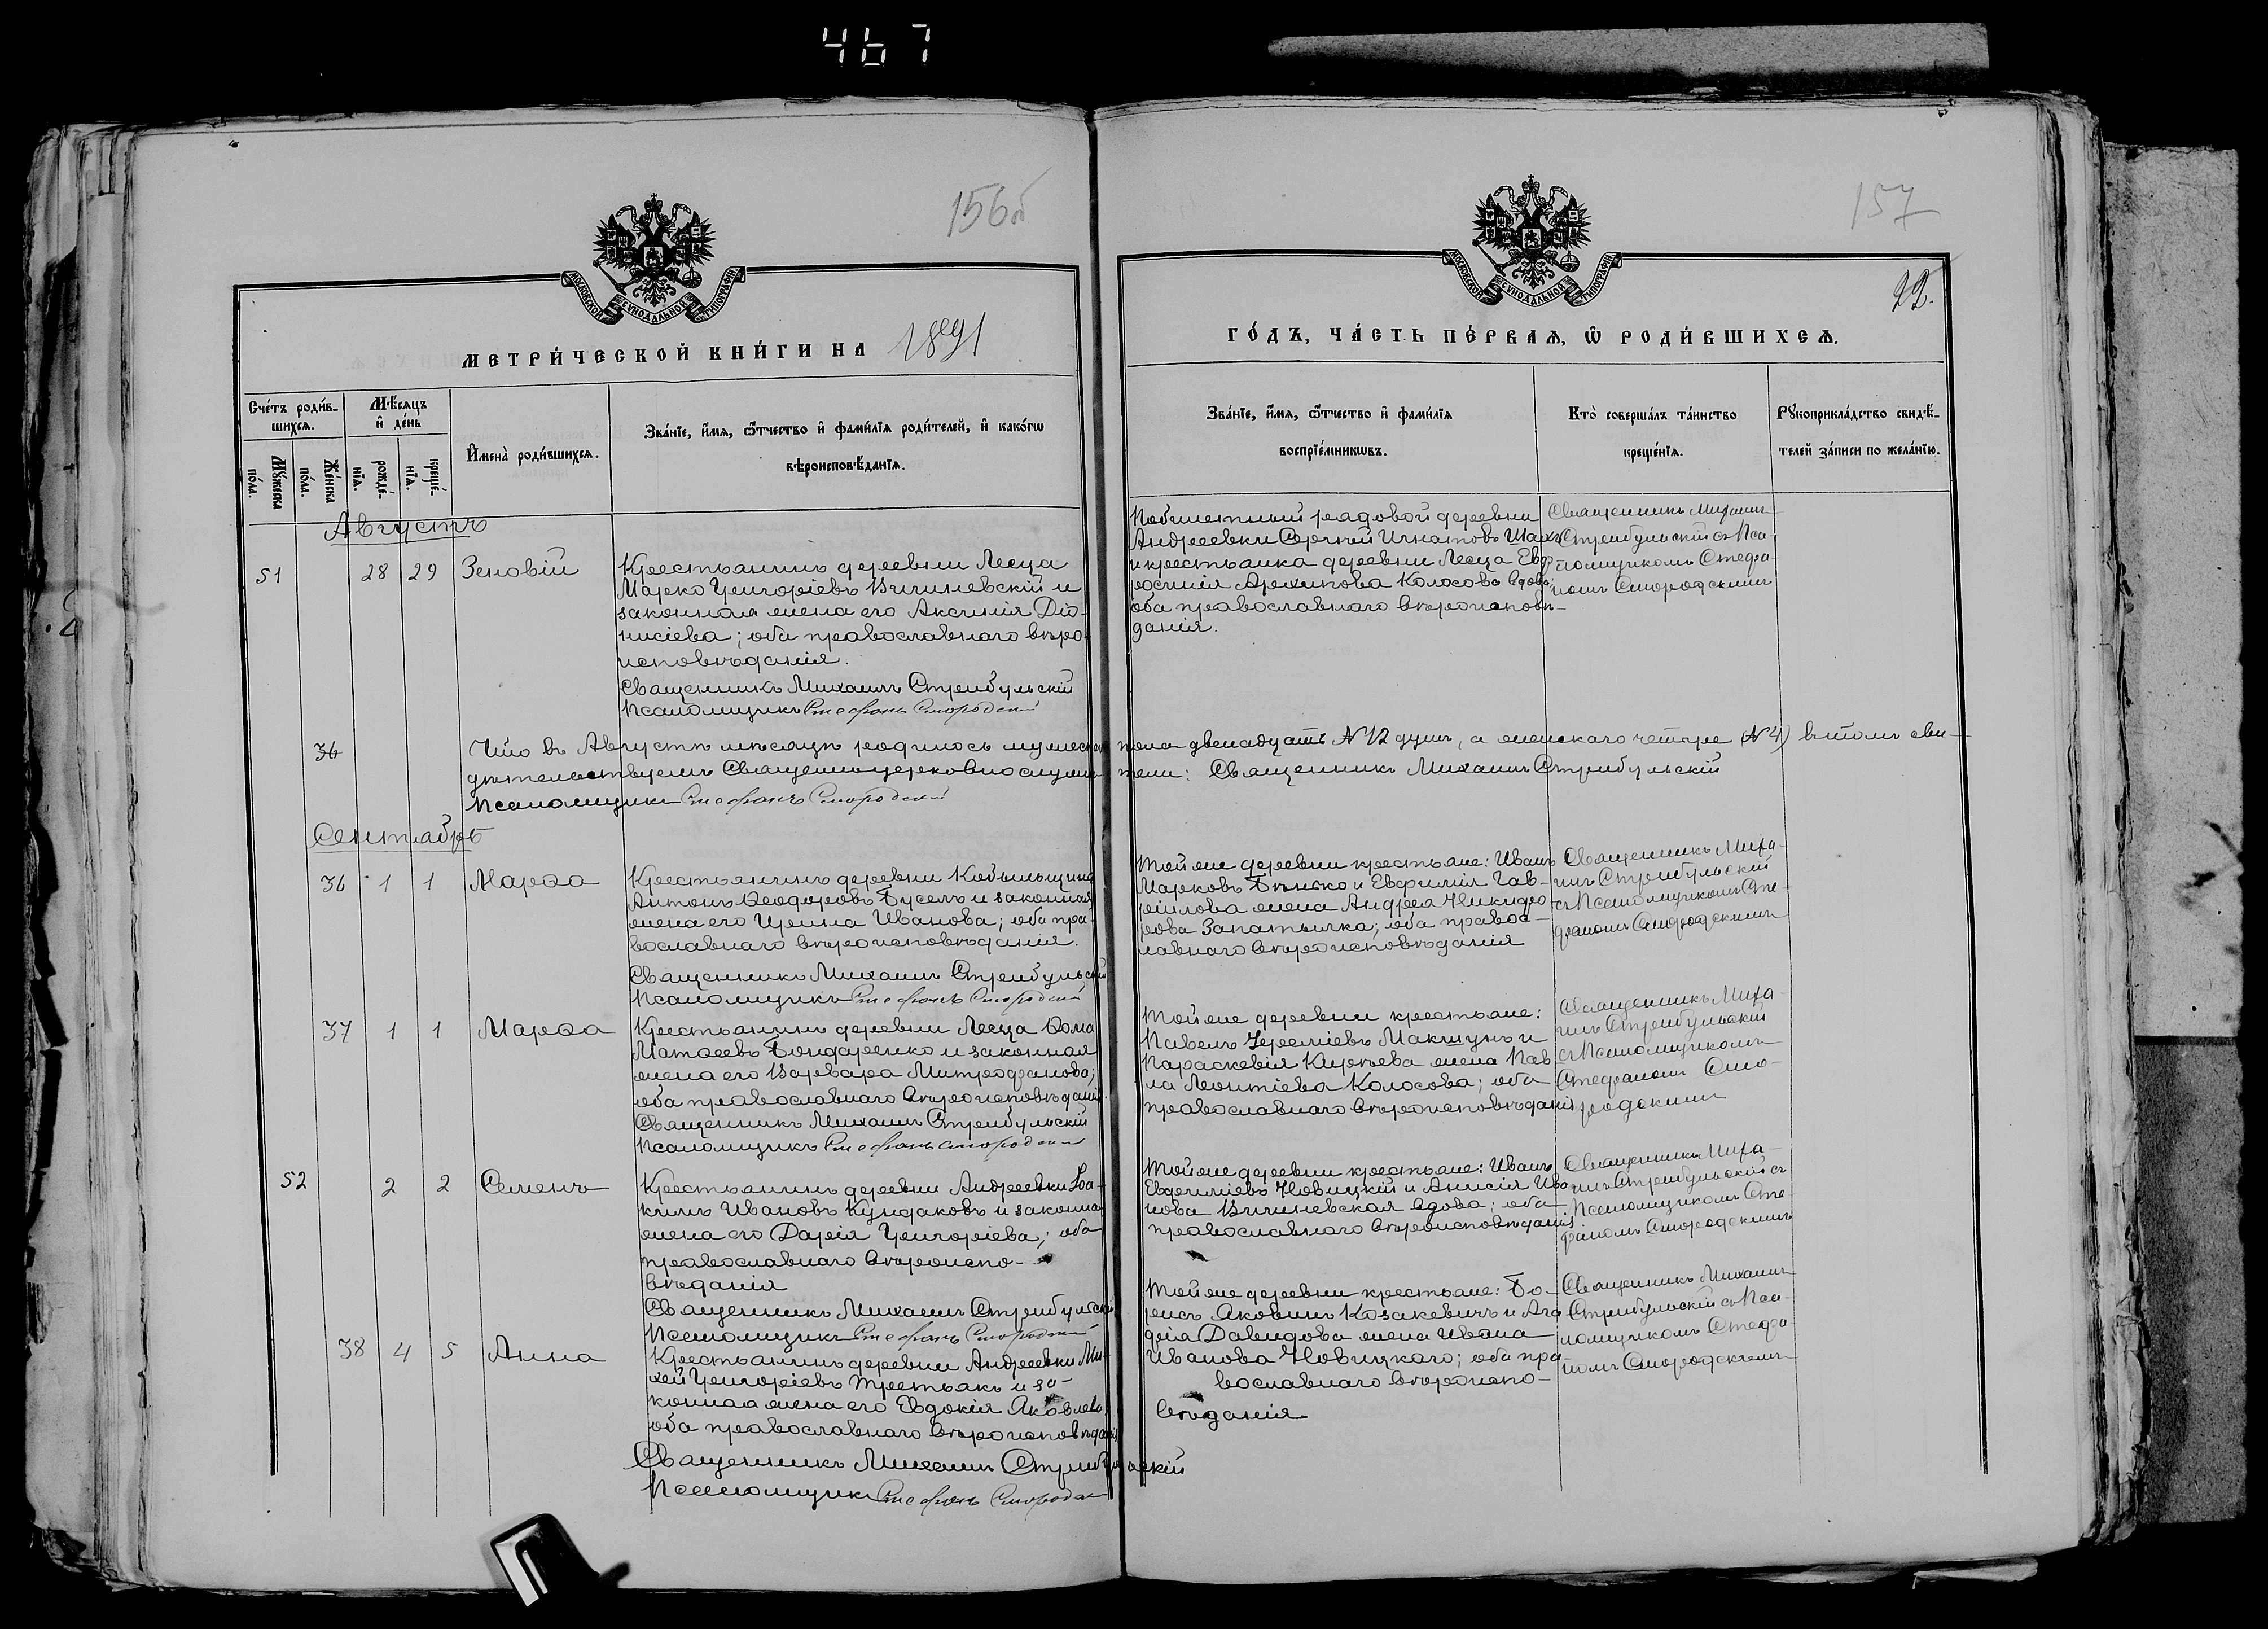 467
156об
157
22.
МОСКОВСКОЙ СѴНОДАЛЬНОЙ ТИПОГРАФІИ
МОСКОВСКОЙ СѴНОДАЛЬНОЙ ТИПОГРАФІИ
МЕТРИ́ЧЕСКОЙ КНИ́ГИ НА 1891
ГО́ДЪ, ЧА́СТЬ ПЕ́РВАѦ, Ѿ РОДИ́ВШИХСѦ.
Сче́тъ роди́в-
шихсѧ.
Мѣ́сѧцъ
и҆ де́нь
Мꙋ́жеска
по́ла.
Же́нска
по́ла.
рожде́-
нїѧ.
креще́-
нїѧ.
И҆мена̀ роди́вшихсѧ.
Зва́нїе, и҆́мѧ, ѻ҆́тчество и҆ фами́лїѧ роди́телей, и҆ како́гѡ
вѣроисповѣ́данїѧ.
Зва́нїе, и҆́мѧ, ѻ҆́тчество и҆ фами́лїѧ
воспрїе́мникѡвъ.
Кто̀ соверша́лъ та́инство
креще́нїѧ.
Рꙋкоприкла́дство свидѣ́-
телей за́писи по жела́нїю.
Августъ
51 28 29 Зеновій
Крестьянинъ деревни Лесца
Марко Григоріевъ Вишневскій и
законная жена его Аксинія Діо-
нисіева; оба православнаго вѣро-
исповѣданія.
Священникъ Михаилъ Стрибульскій
Псаломщикъ Стефанъ Смородскій
рядовой деревни
Андреевки Сергій Игнатовъ
и крестьянка деревни Лесца Евф-
росинія Архипова Колосова вдова;
оба православнаго вѣроисповѣ-
данія.
Священникъ Михаилъ
Стрибульскій съ Пса-
ломщикомъ Стефа-
номъ Смородскимъ
36 Что въ Августѣ мѣсяцѣ родилось мужеска пола двенадцать №12 душъ, а женскаго четыре (№4) въ томъ сви-
дѣтельствуемъ Священно церковно служители: Священникъ Михаилъ Стрибульскій
Псаломщикъ Стефанъ Смородскій
Сентябрь
36 1 1 Марѳа
Крестьянинъ деревни
Антонъ Ѳеодоровъ Буселъ и законная
жена его Ирина Иванова; оба пра-
вославнаго вѣроисповѣданія.
Священникъ Михаилъ Стрибульскій
Псаломщикъ Стефанъ Смородскій
Той же деревни крестьяне: Иванъ
Марковъ Бѣлько и Евфимія Гав-
рілова жена Андрея Никифо
рова; оба правос-
лавнаго вѣроисповѣданія
Священникъ Миха-
илъ Стрибульскій
съ Псаломщикомъ Сте-
фаномъ Смородскимъ
37 1 1 Марѳа
Крестьянинъ деревни Лесца Ѳома
Матѳеевъ Бондаренко и законная
жена его Варвара Митрофанова;
оба православнаго вѣроисповѣданія
Священникъ Михаилъ Стрибульскій
Псаломщикъ Стефанъ Смородскій
Той же деревни крестьяне:
Павелъ Іереміевъ Макшунъ и
Параскевія Кирѣева жена Пав-
ла Леонтіева Колосова; оба
православнаго вѣроисповѣданія
Священникъ Миха-
илъ Стрибульскій
съ Псаломщикомъ
Стефаномъ Смо-
родскимъ
52 2 2 Семенъ
Крестьянинъ деревни Андреевки Іоа-
кимъ Ивановъ Кундаковъ и законная
жена его Дарія Григоріева; оба
православнаго вѣроиспо-
вѣданія
Священникъ Михаилъ Стрибульскій
Псаломщикъ Стефанъ Смородскій
Той же деревни крестьяне: Иванъ
Евфиміевъ Новицкій и Анисія Ива-
нова Вишневская вдова; оба
православнаго вѣроисповѣданія
Священникъ Миха-
илъ Стрибульскій съ
Псаломщикомъ Сте-
фаномъ Смородскимъ
38 4 5 Анна
Крестьянинъ деревни Андреевки Ми-
хей Григоріевъ Третьякъ и за-
конная жена его Евдокія Яковлева
оба православнаго вѣроисповѣданія
Священникъ Михаилъ Стрибульскій
Псаломщикъ Стефанъ Смородскій
Той же деревни крестьяне: Бо-
рисъ Яковлевъ Козакевичъ и Ага-
фія Давидова жена Ивана
Иванова Новицкаго; оба пра-
вославнаго вѣроиспо-
вѣданія
Священникъ Михаилъ
Стрибульскій съ Пса-
ломщикомъ Стефа-
номъ Смородскимъ